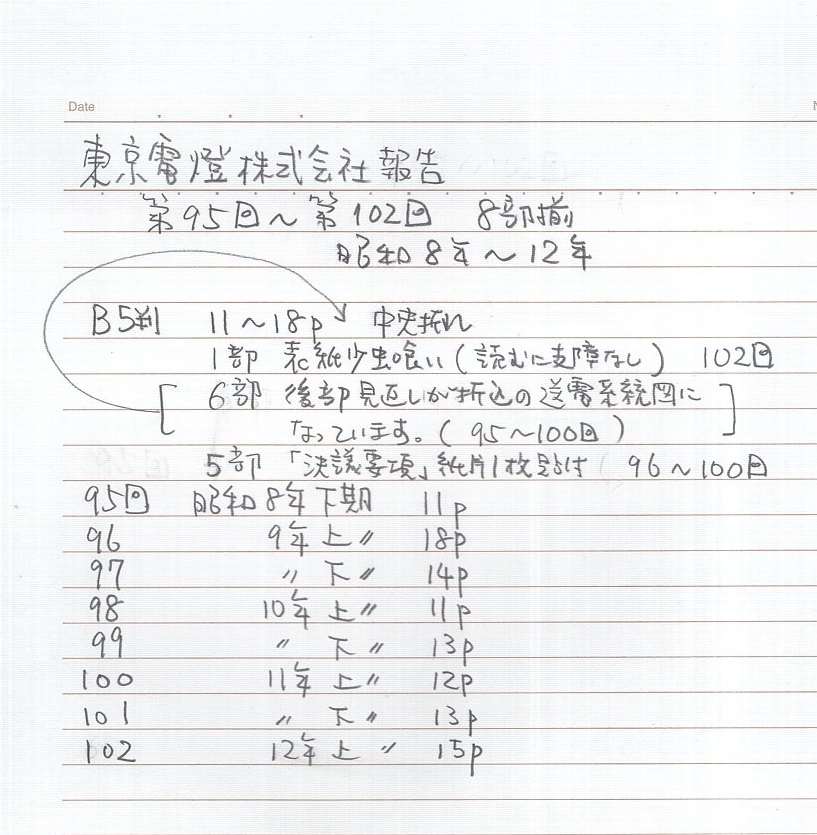 Date
東京電燈株式会社報告
第95回～第102回 8部揃
昭和8年～12年
B5判 11～18p 中央折れ
1部 表紙少虫喰い(読むに支障なし) 102回
[6部 後部見返しが折込の送電系統図に
なっています。(95～100回)]
5部 「決議要項」紙片1枚貼付 96～100回
95回 昭和8年下期 11p
96 9年上〃 18p
97 〃 下〃 14p
98 10年上〃 11p
99 〃 下〃 13p
100 11年上〃 12p
101 〃 下〃 13p
102 12年上〃 15p